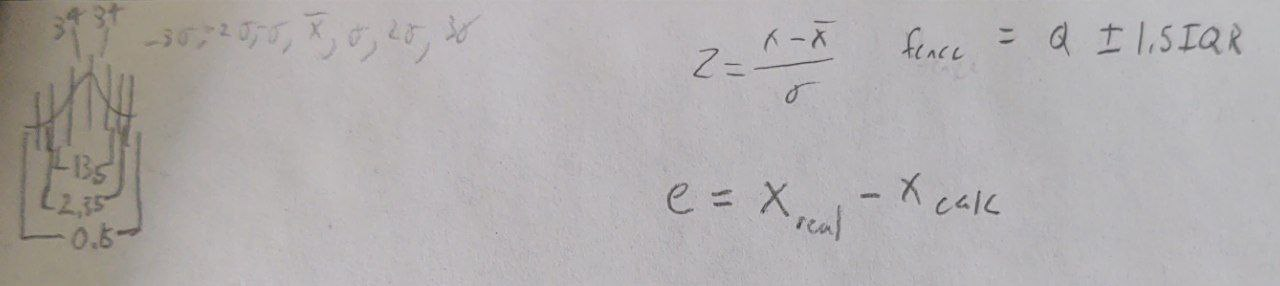 34 34
-3σ, -2σ, -σ, x̄, σ, 2σ, 3σ
13.5
2.35
0.15
z = (x - x̄) / σ
fence = Q ± 1.5IQR
e = x_real - x_calc